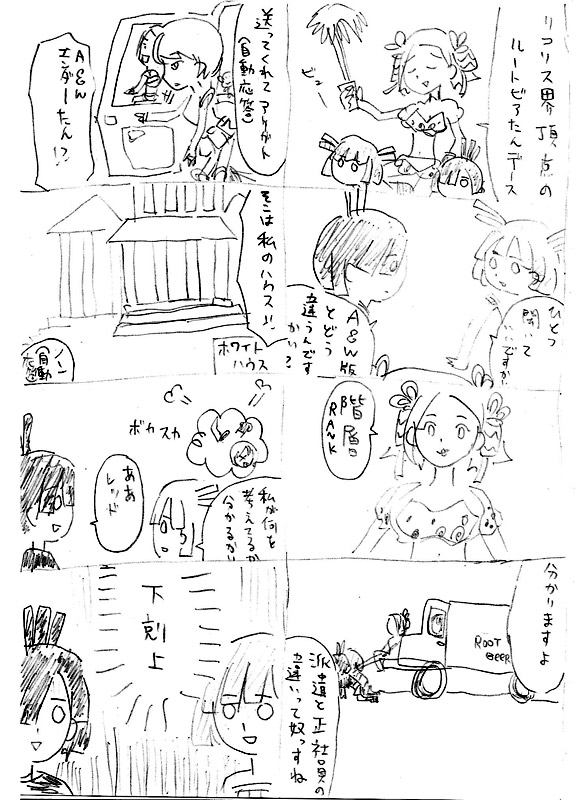 リコリス界頂点の
ルートビアたんデース
ビュー
ひとつ
聞いて
いいですか?
A&W版
とどう
違うんです
かい?
階層
RANK
分かりますよ
ROOT
BEER
派遣と正社員の
違いって奴っすね
送ってくれてアリガト
(自動応答)
A&W
エンダーたん!?
そこは私のハウス!!
ホワイト
ハウス
ノーン
(自動
応答
私が何を
考えてるか
分かるかい
ボカスカ
ああ
レッド
下剋上